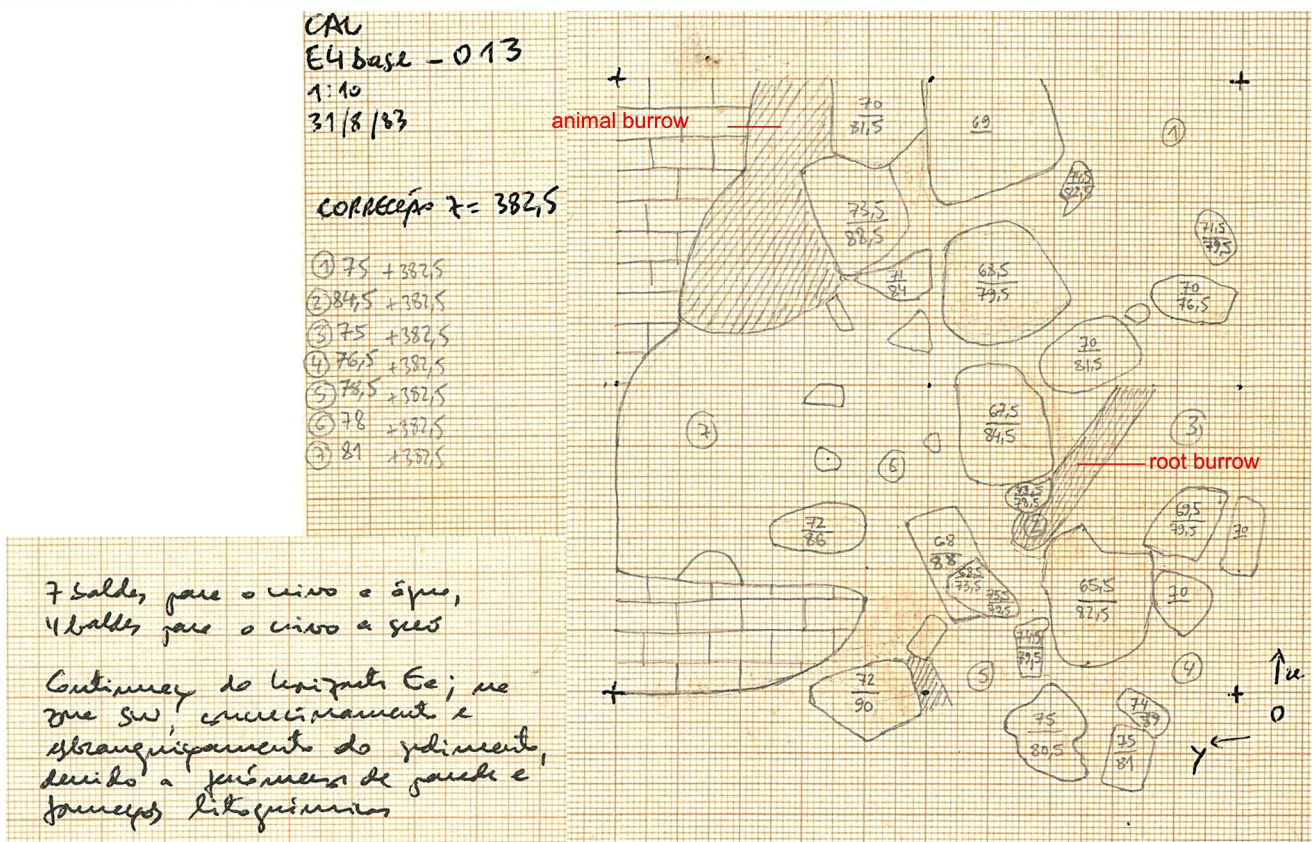 CAL
E4 base - 013
1:10
31/8/83
CORRECÇÃO Z = 382,5
① 75 +382,5
② 84,5 +382,5
③ 75 +382,5
④ 76,5 +382,5
⑤ 78,5 +382,5
⑥ 78 +382,5
⑦ 81 +382,5
7 baldes para o crivo a água,
4 baldes para o crivo a seco
Continuação do horizonte Ee; na
zona sul, concrecionamento e
esbranquiçamento do sedimento,
devido a fenómenos de parede e
litoquímicos
animal burrow
70
81,5
69
①
73,5
88,5
71,5
79,5
71
84
68,5
79,5
70
76,5
70
81,5
67,5
84,5
⑦
⑥
③
root burrow
72
86
68
88
69,5
79,5
70
65,5
82,5
70
74,5
79,5
⑤
④
72
90
75
80,5
74
89
75
81
Y
O